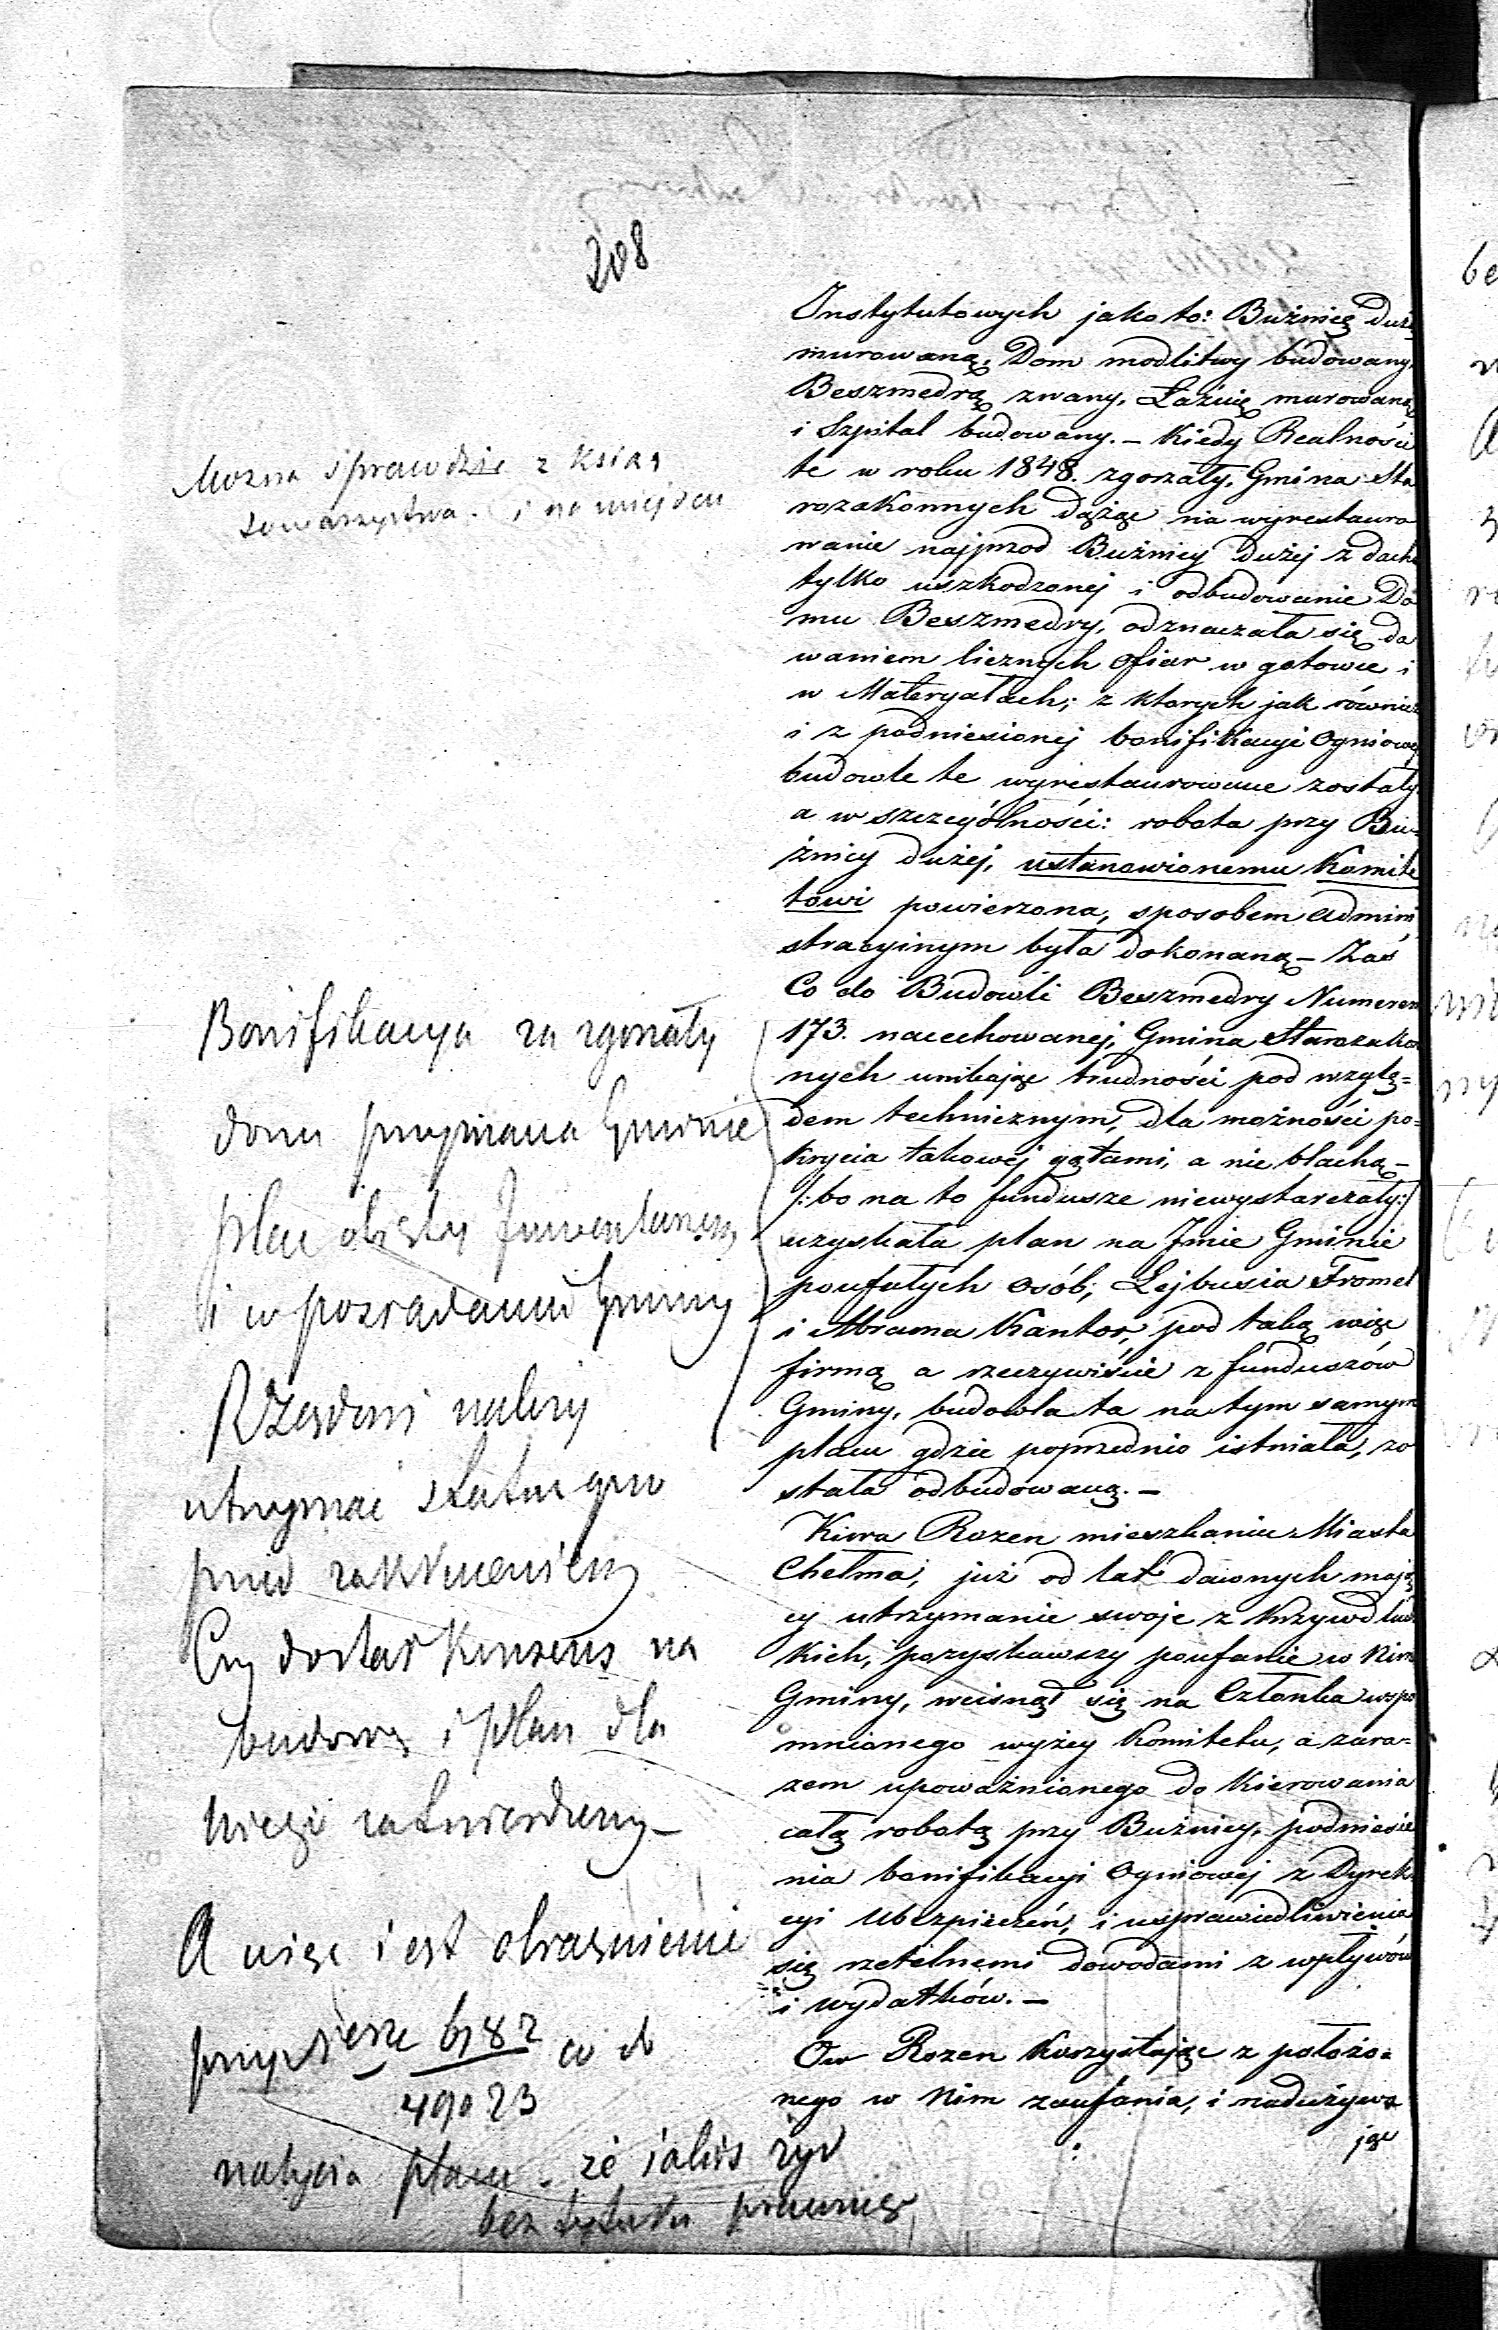 208
Instytutowych jako to: Bużnicę dużą
murowaną, Dom modlitwy budowany,
Beszmedrą zwany, Łaźnię murowaną
i Szpital budowany. – Kiedy Realności
te w roku 1848. zgorzały, Gmina Sta
rozakonnych dążąc na wyrestauro
wanie najprzod Bużnicy dużej z dachu
tylko uszkodzonej i odbudowanie Do
mu Beszmedry, odznaczała się da
waniem licznych ofiar w gotowce i
w Materyałach; z ktorych jak również
i z podniesionej bonifikacyi Ogniowej
budowle te wyrestaurowane zostały
a w szczególności: robota przy Bu=
żnicy dużej, ustanowionemu Komite
towi powierzona, sposobem Admini
stracyinym była dokonaną – Zaś
Co do Budowli Beszmedry Numerem
173. nacechowanej, Gmina Starozakon
nych unikając trudności pod wzglę=
dem technicznym, dla możności po=
krycia takowej gątami, a nie blachą –
/: bo na to fundusze niewystarczały :/
uzyskała plan na Jmie Gminie
poufałych osób; Lejbusia Fromel
i Abrama Kantor, pod taką więc
firmą a rzeczywiście z funduszów
Gminy, budowla ta na tym samym
placu gdzie poprzednio istniała, zo
stała odbudowaną. –
Kiwa Rozen mieszkaniec Miasta
Chełma, już od lat dawnych mają
cy utrzymanie swoje z krzywd ludz
kich, pozyskawszy poufanie w Nim
Gminy, wcisnął się na Członka wspo
mnionego wyżey Komitetu, a zara=
zem upoważnionego do kierowania
całą robotą przy Bużnicy, podniesie
nia bonifikacyi Ogniowej z Dyrek
cyi Ubezpieczeń, i usprawiedliwienia
się rzetelnemi dowodami z wpływów
i wydatków. –
Ow Rozen korzystając z położo=
nego w Nim zaufania, i nadużywa
jąc
Mozna sprawdzic z Ksiąg
Towarzystwa i na miejscu
Bonifikacya za zgorzały
dom przyznana Gminie
plac objęty Inwentarzem
i w posiadaniu Gminy
Rządowi należy
utrzymać status quo
przed
Czy dostał Konsens na
budowę i plan dla
niego zatwierdzony –
A więc jest obraźnienie
6182
co do
49023
nabycia placu – że jakiś żyd
bez tytułu prawnego